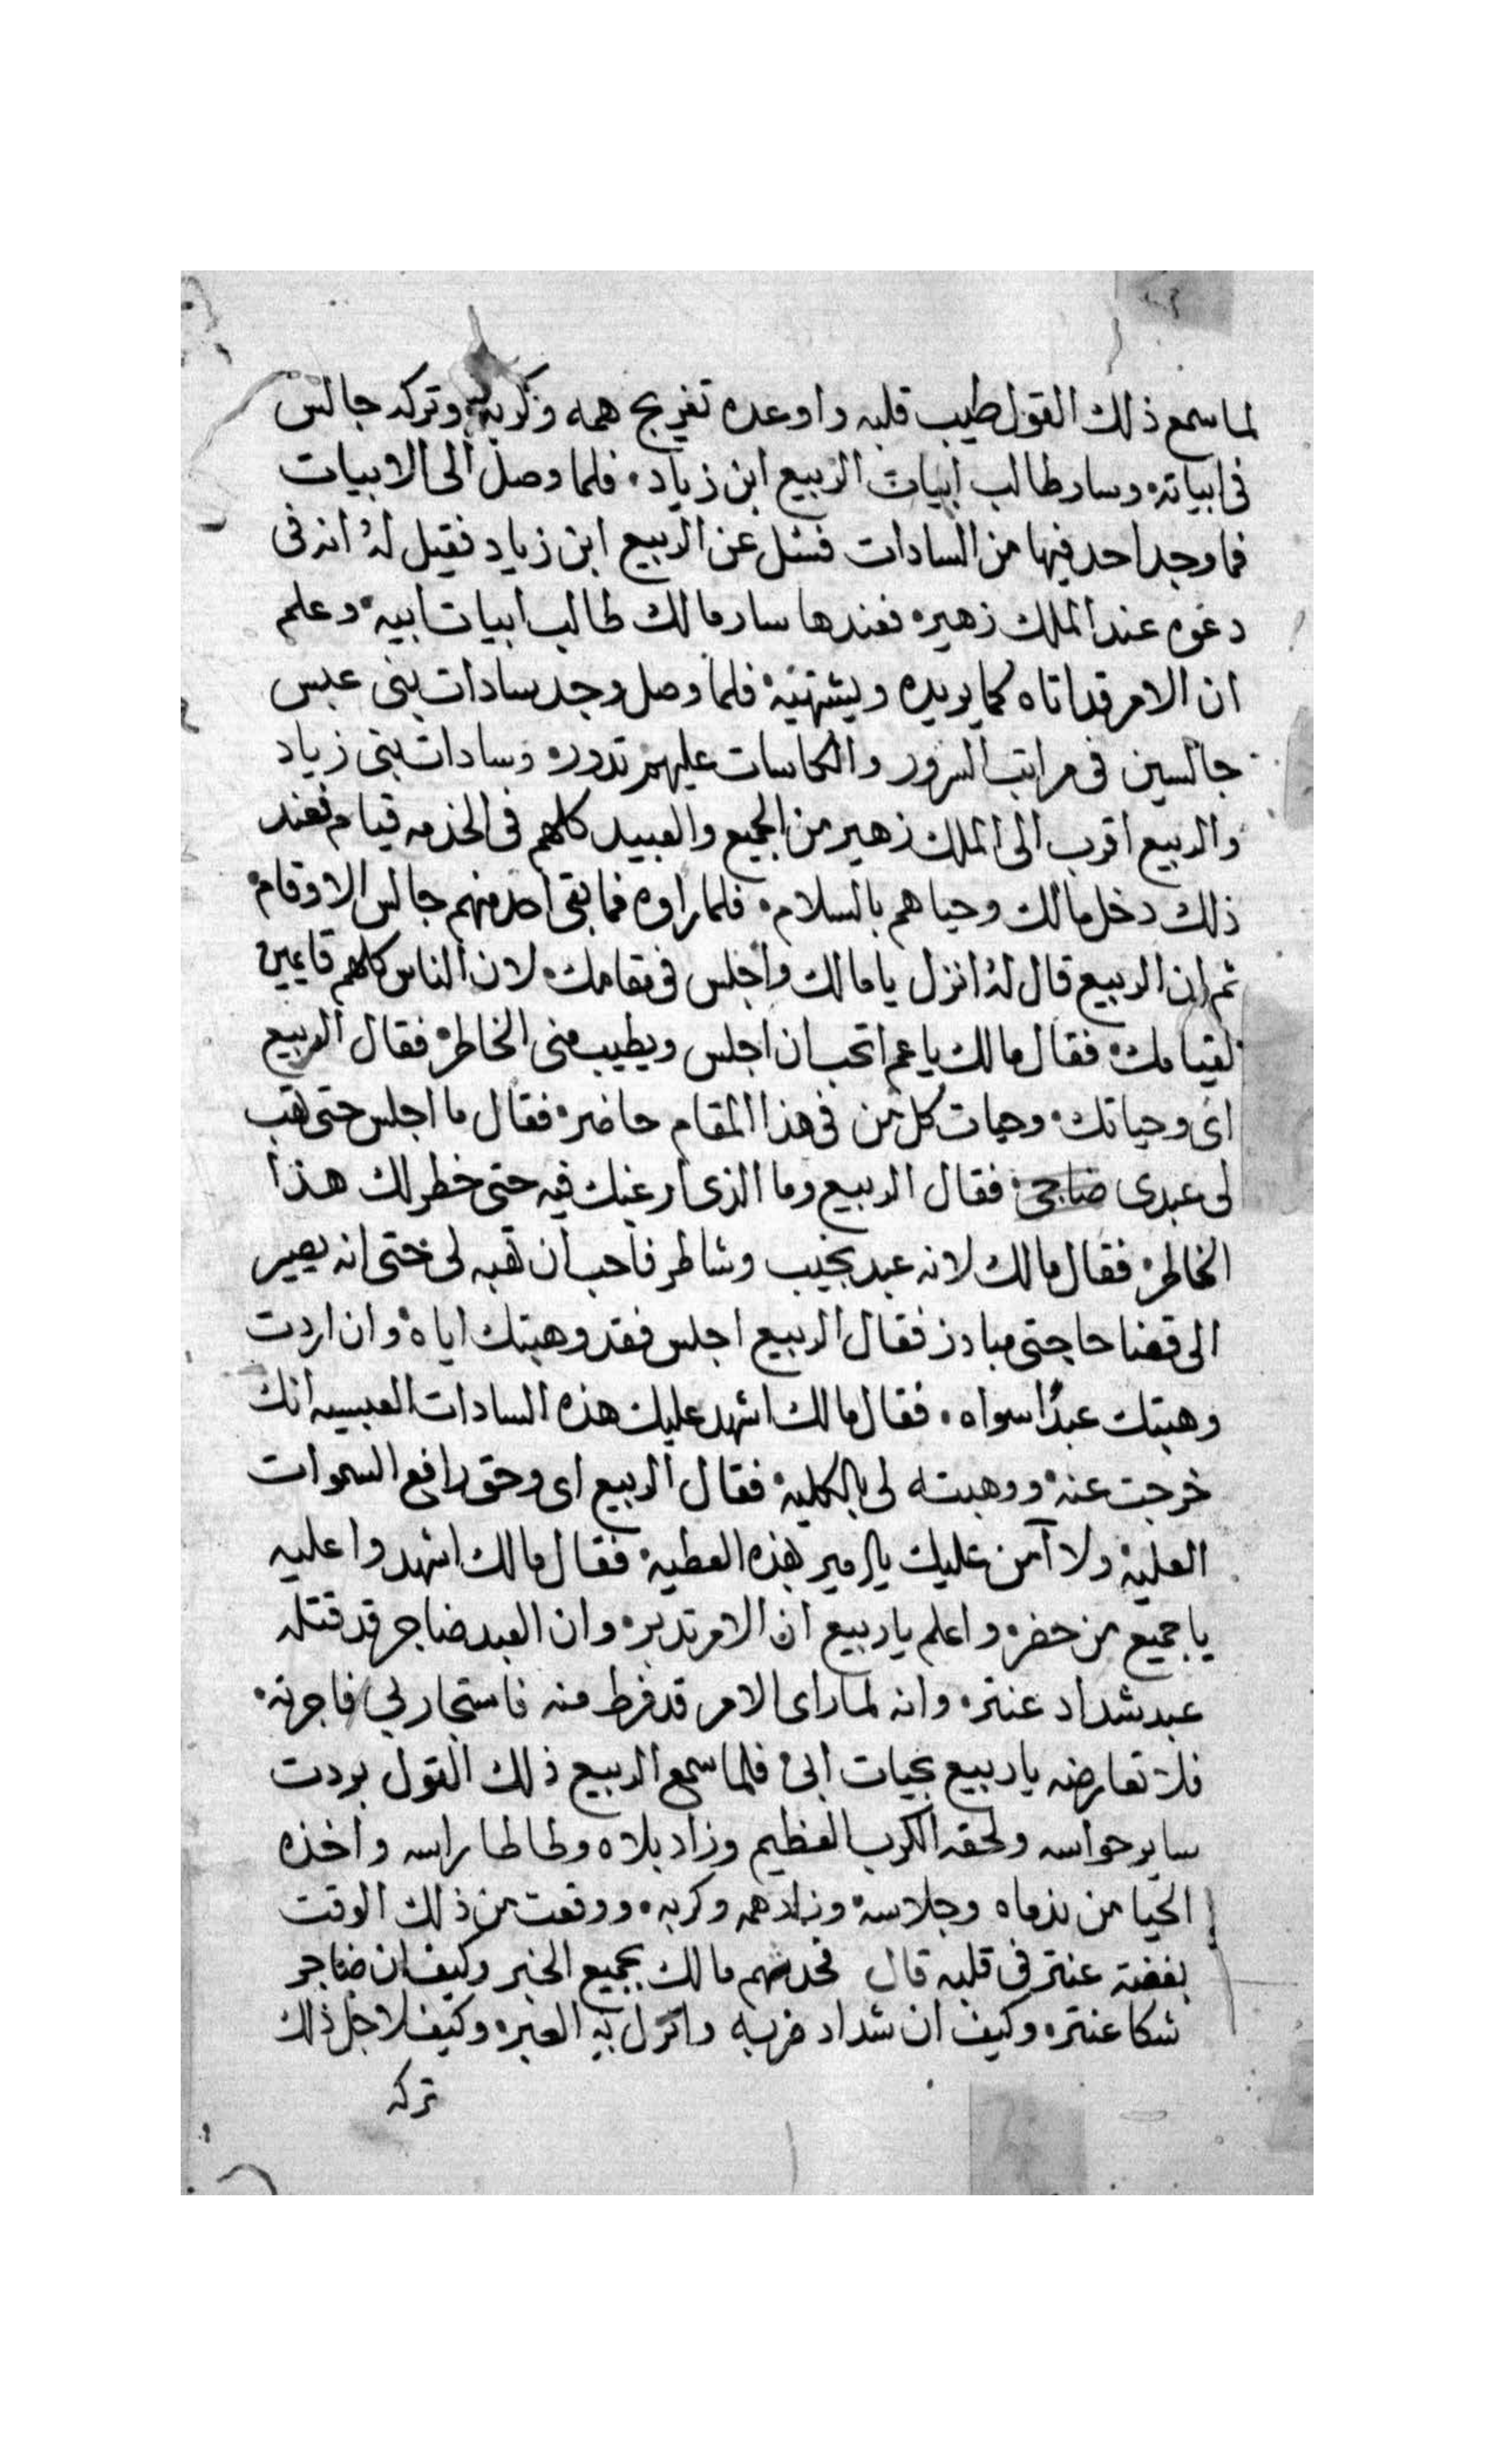 لما سمع ذلك القول طيب قلبه واوعده تفريج همه وكربه وتركه جالس
فى ابياته وسار طالب ابيات الربيع ابن زياد، فلما وصل الى الابيات
فما وجد احد فيها من السادات فسئل عن الربيع ابن زياد فقيل له انه فى
دعوه عند الملك زهير، فعندها سار مالك طالب ابيات ابيه، وعلم
ان الامر قد اتاه كما يريده ويشتهيه، فلما وصل وجد سادات بنى عبس
جالسين فى مراتب السرور والكاسات عليهم تدور، وسادات بنى زياد
والربيع اقرب الى الملك زهير من الجميع والعبيد كلهم فى الخدمه قيام فعند
ذلك دخل مالك وحياهم بالسلام، فلما راوه فما بقى احد منهم جالس الا وقام،
ثم ان الربيع قال له انزل يا مالك واجلس فى مقامك، لان الناس كلهم قايمين
لقيامك، فقال مالك يا عم اتحب ان اجلس ويطيب منى الخاطر، فقال الربيع
اى وحياتك، وحيات كل من فى هذا المقام حاضر، فقال ما اجلس حتى تهب
لى عبدى ضاجر، فقال الربيع وما الذى ارغبك فيه حتى خطر لك هذا
الخاطر، فقال مالك لانه عبد نجيب وشاطر فاحب ان تهبه لى حتى انه يصير
الى قضا حاجتى مبادر فقال الربيع اجلس فقد وهبتك اياه، وان اردت
وهبتك عبدًا سواه، فقال مالك اشهد عليك هذه السادات العبسيه انك
خرجت عنه، ووهبته لى بالكليه، فقال الربيع اى وحق رافع السموات
العليه، ولا آمن عليك يا امير بهذه العطيه، فقال مالك اشهدوا عليه
يا جميع من حضر، واعلم يا ربيع ان الامر تدبر، وان العبد ضاجر قد قتله
عبد شداد عنتر، وانه لما راى الامر قد فرط منه فاستجار بى فاجرته،
فلا تعارضه يا ربيع بحيات ابى، فلما سمع الربيع ذلك القول بردت
ساير حواسه ولحقه الكرب العظيم وزاد بلاه وطاطا راسه واخذه
الحيا من ندماه وجلاسه، وزاد همه وكربه، ووقعت من ذلك الوقت
بغضة عنتر فى قلبه قال فحدثهم مالك بجميع الخبر وكيف ان ضاجر
شكا عنتر، وكيف ان شداد ضربه وانزل به العبر، وكيف لاجل ذلك
تركه